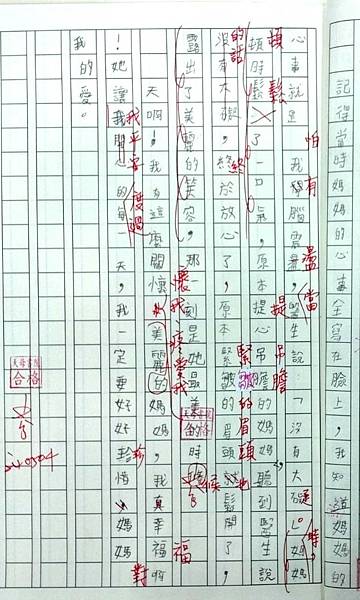 記得當時媽媽的心事全寫在臉上，我知道媽媽的
心事就是怕我有腦震盪，當醫生說：「沒有大礙」時，媽媽
頓時鬆了一口氣，原本提心吊膽的媽媽，聽到醫生說
沒有大礙的話，終於放心了，原本緊皺的眉頭就鬆開了，
露出了美麗的笑容，那一刻是她最美的時候
天啊！有這麼關懷我、疼愛我美麗的媽媽，我真幸福啊
！她讓我平安開心的度過每一天，我一定要好好珍惜媽媽對
我的愛。
合格